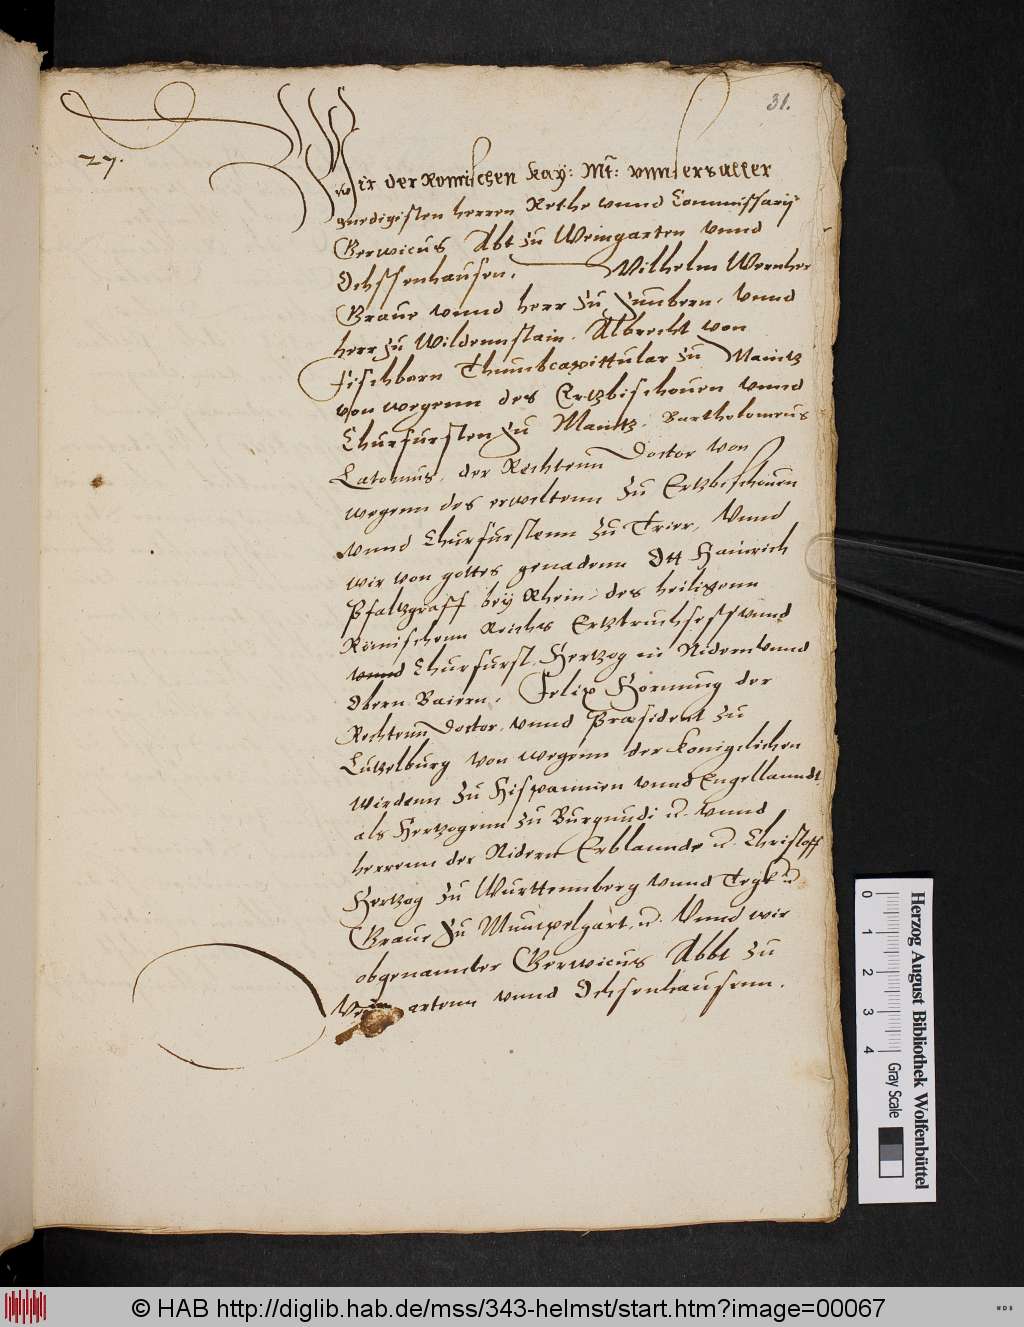 31.
27.
Wir der Romischen Kay: Mt: vnnsers aller
gnedigisten herren Rethe vnnd Commissarij
Gerwicus Abt zu Weingarten vnnd
Ochssenhausen, Wilhelm Wernher
Graue vnnd herr zu Zimbern, vnnd
herr zu Wildennstain, Albrecht von
Fischborn Thumbcapittular zu Maintz
von wegenn des Ertzbischouen vnnd
Churfursten zu Maintz, Bartholomeus
Latomus, der Rechtenn Doctor von
wegenn des erweltenn zu Ertzbischouen
vnnd Churfurstenn zu Trier, Vnnd
wir von gottes genadenn Ott Hainrich
Pfaltzgraff bey Rhein, des heiligenn
Römischenn Reichs Ertztruchsess vnnd
vnnd Churfurst, Hertzog in Nidern vnnd
Obern Baiern, Felix Hornung der
Rechtenn Doctor, vnnd Præsident zu
Lutzelburg von wegenn der Koniglichen
wirdenn zu Hispannien vnnd Engellanndt,
als Hertzogenn zu Burgundi vnnd
herrenn der Nidern Erblannde Christoff
Hertzog zu Wurttemberg vnnd Tegk
Graue zu Mumpelgart, Vnnd wir
obgenannter Gerwicus Abbt zu
artenn vnnd Ochsenhausenn.
Herzog August Bibliothek Wolfenbüttel
0 1 2 3 4
Gray Scale
© HAB http://diglib.hab.de/mss/343-helmst/start.htm?image=00067
WDB